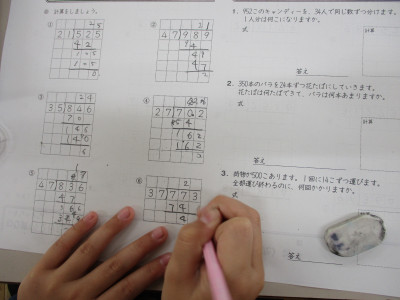 計算をしましょう。
①
21525
42
②
21
47989
94
49
47
2
③
24
35846
70
146
140
6
④
27702
54
162
162
⑤
17
47836
47
⑥
2
37773
74
1. 952このキャンディーを、34人で同じ数ずつ分けます。
1人分は何こになりますか。
式
計算
答え
2. 350本のバラを24本ずつ花たばにしていきます。
花たばは何たばできて、バラは何本あまりますか。
式
計算
答え
3. 荷物が500こあります。1回に14こずつ運びます。
全部運び終わるのに、何回かかりますか。
式
計算
答え